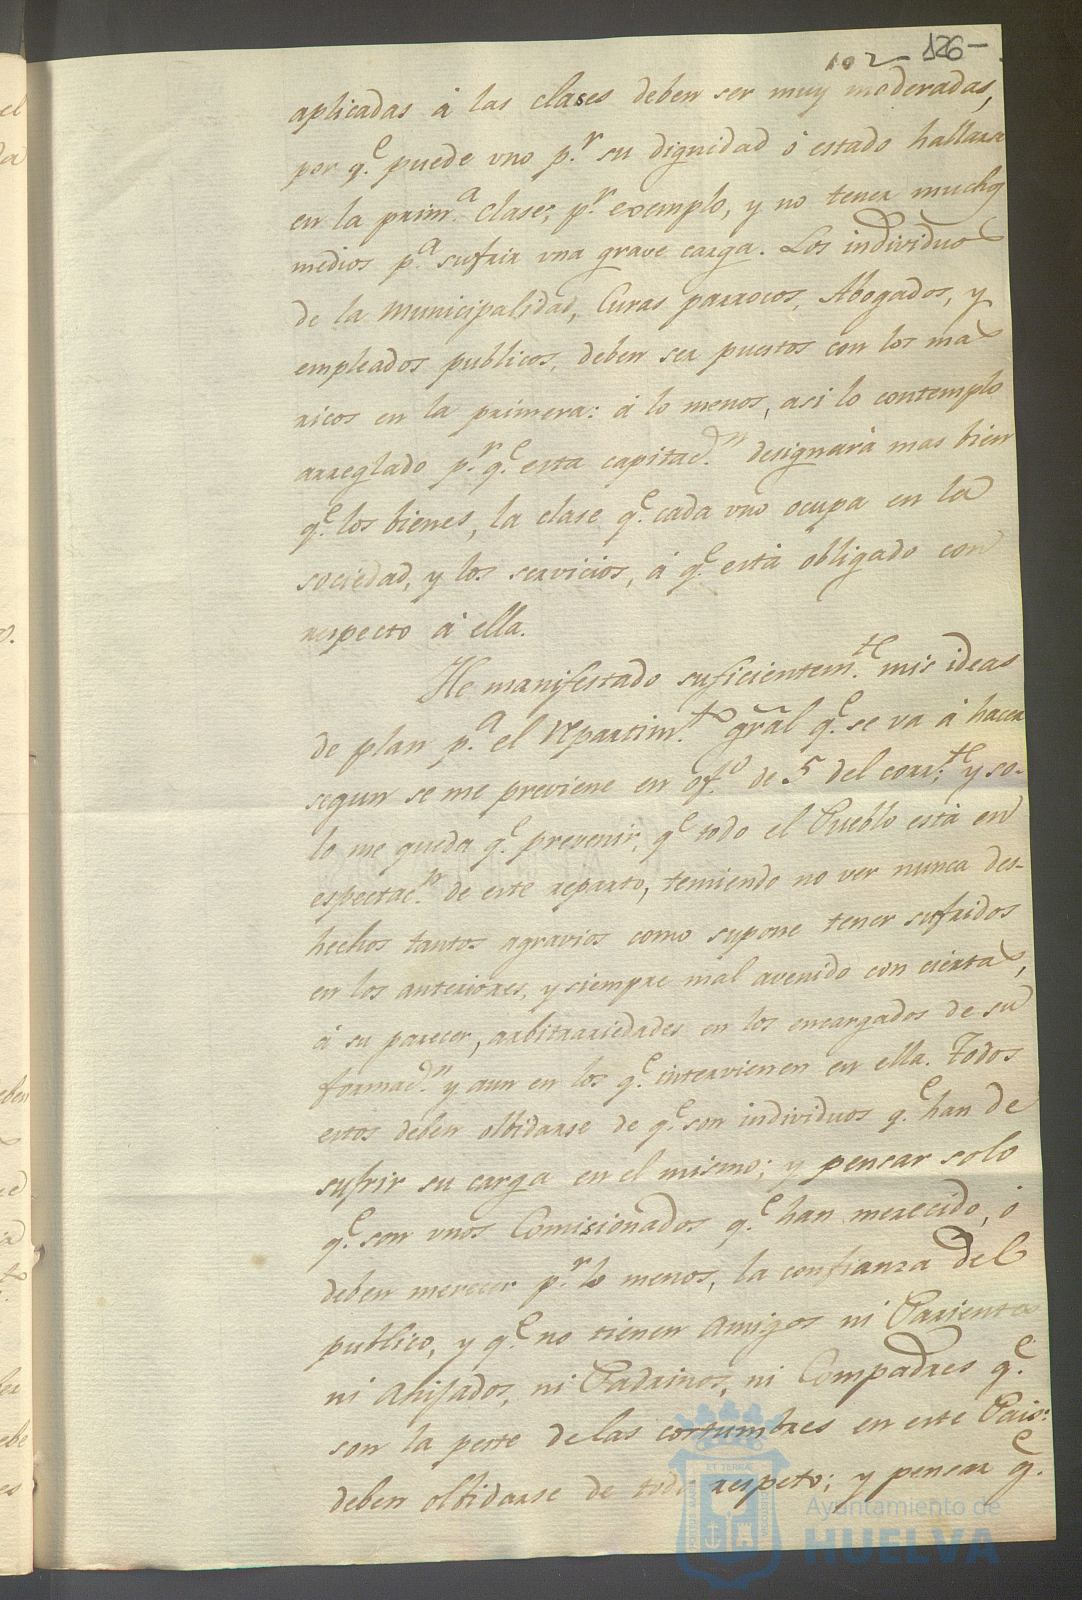 102 126
aplicadas á las clases deben ser muy moderadas,
por q.e puede vno p.r su dignidad ó estado hallarse
en la prim.a clase, p.r exemplo, y no tener muchos
medios p.a sufrir vna grave carga. Los individuos
de la Municipalidad, Curas parrocos, Abogados, y
empleados publicos, deben ser puestos con los mas
ricos en la primera: á lo menos, asi lo contemplo
arreglado p.r q.e esta capitac.n designará mas bien
q.e los bienes, la clase q.e cada vno ocupa en la
sociedad, y los servicios, á q.e está obligado con
respecto á ella.
He manifestado suficientem.te mis ideas
de plan p.a el repartim.to gral q.e se va á hacer
segun se me previene en of.o de 5 del corr.te y so-
lo me queda q.e prevenir, q.e todo el Pueblo está en
espectac.n de este reparto, temiendo no ver nunca des-
hechos tantos agravios como supone tener sufridos
en los anteriores, y siempre mal avenido con ciertas,
á su parecer, arbitrariedades en los encargados de su
formac.n y aun en los q.e intervienen en ella. Todos
estos deben olbidarse de q.e son individuos q.e han de
sufrir su carga en el mismo; y pensar solo
q.e son vnos Comisionados q.e han merecido, ó
deben merecer p.r lo menos, la confianza del
publico, y q.e no tienen Amigos ni Parientes
ni Ahijados, ni Padrinos, ni Compadres q.e
son la peste de las costumbres en este Pais:
deben olbidarse de todo respeto; y pensar q.e
Ayuntamiento de
HUELVA